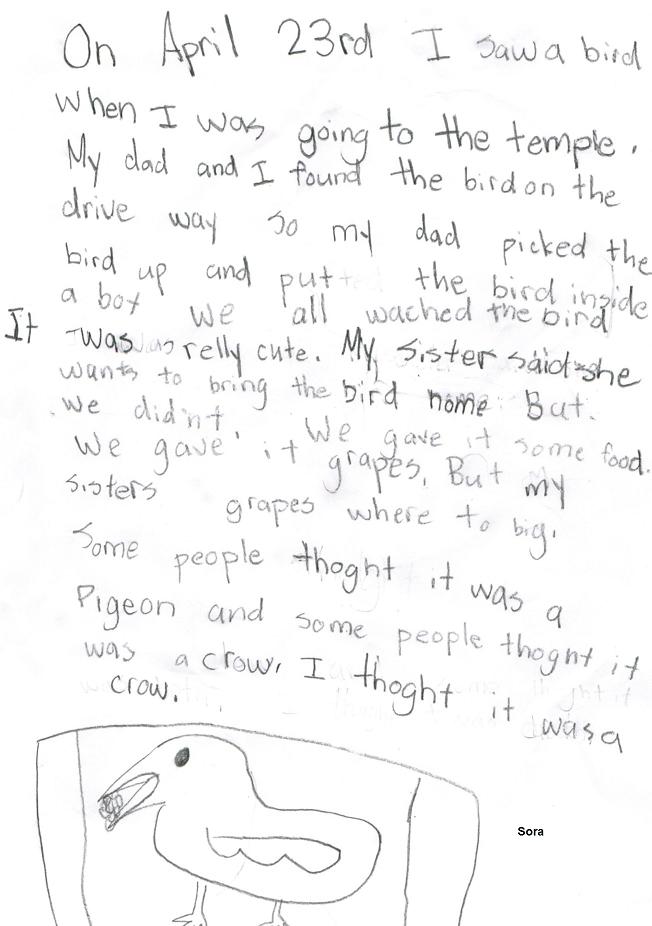 On April 23rd I saw a bird
when I was going to the temple.
My dad and I found the bird on the
drive way so my dad picked the
bird up and putt the bird inside
a box we all wached the bird
It was relly cute. My sister said she
wants to bring the bird home But.
we didn't. We gave it some food.
We gave it grapes. But my
sisters grapes where to big.
Some people thoght it was a
Pigeon and some people thoght it
was a crow. I thoght it was a
crow.
Sora